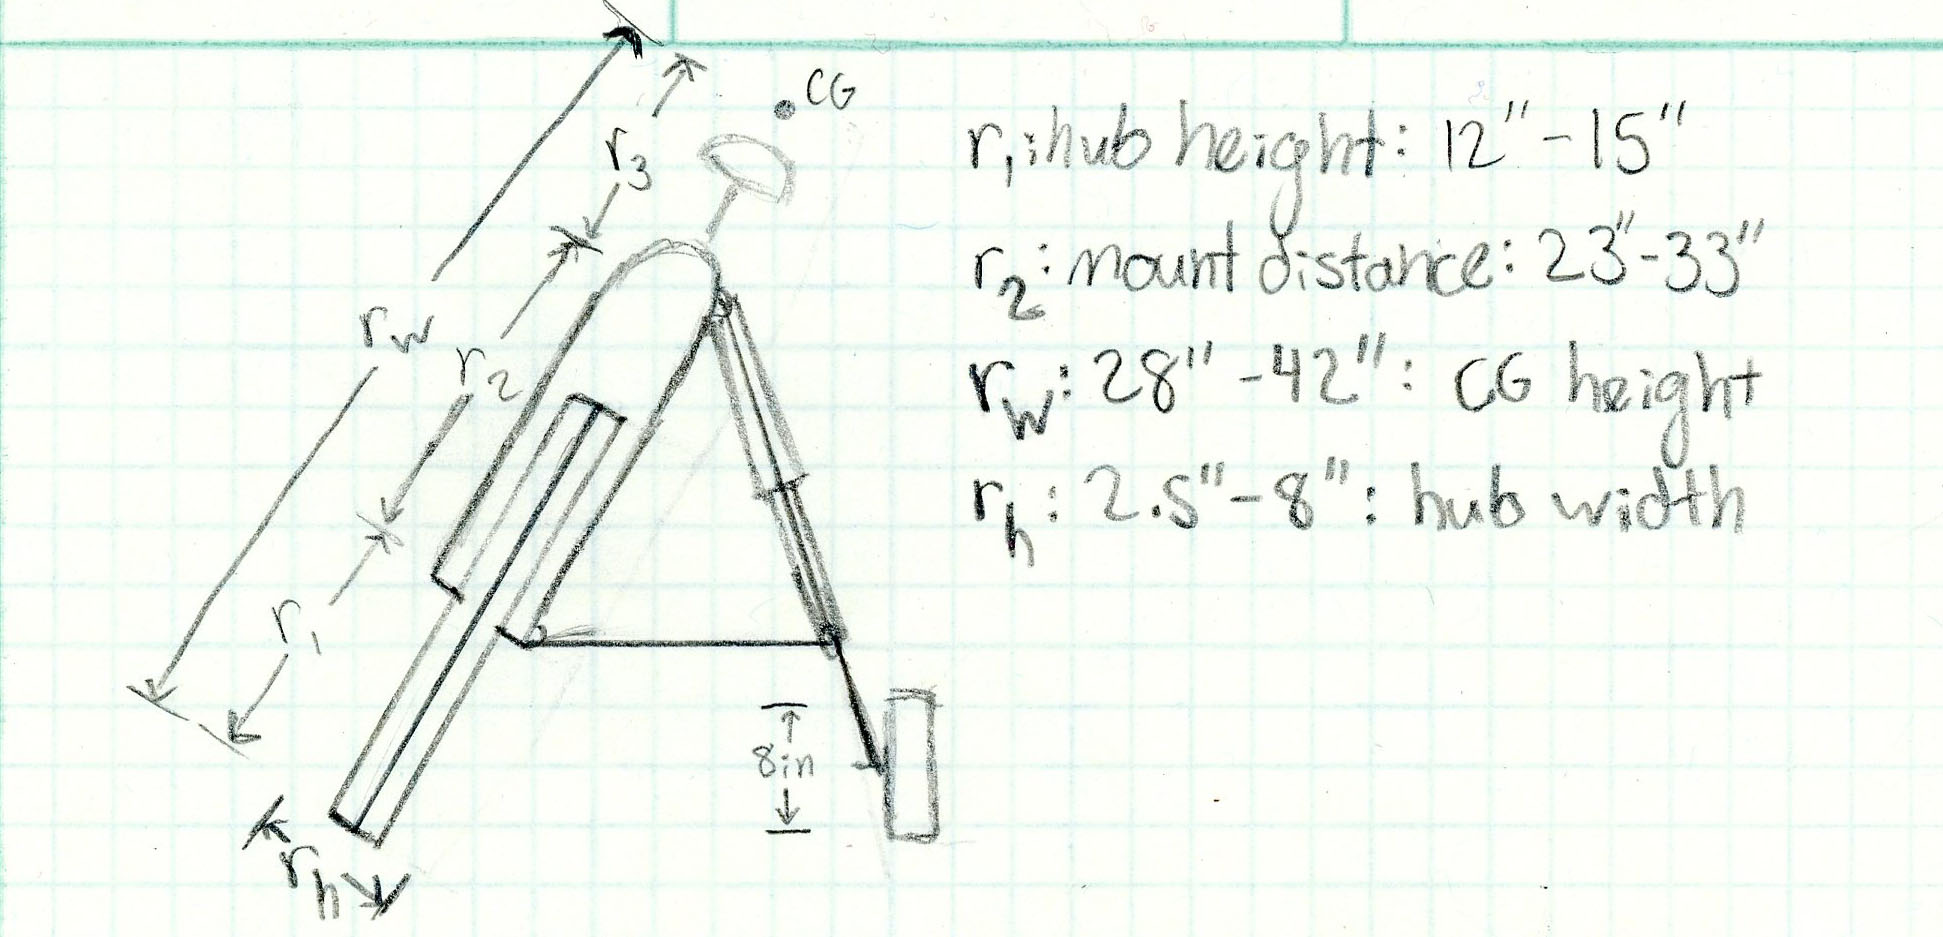 CG
r₃
r_w
r₂
r₁
r_h
8in
r₁: hub height: 12" - 15"
r₂: mount distance: 23" - 33"
r_w: 28" - 42": CG height
r_h: 2.5" - 8": hub width